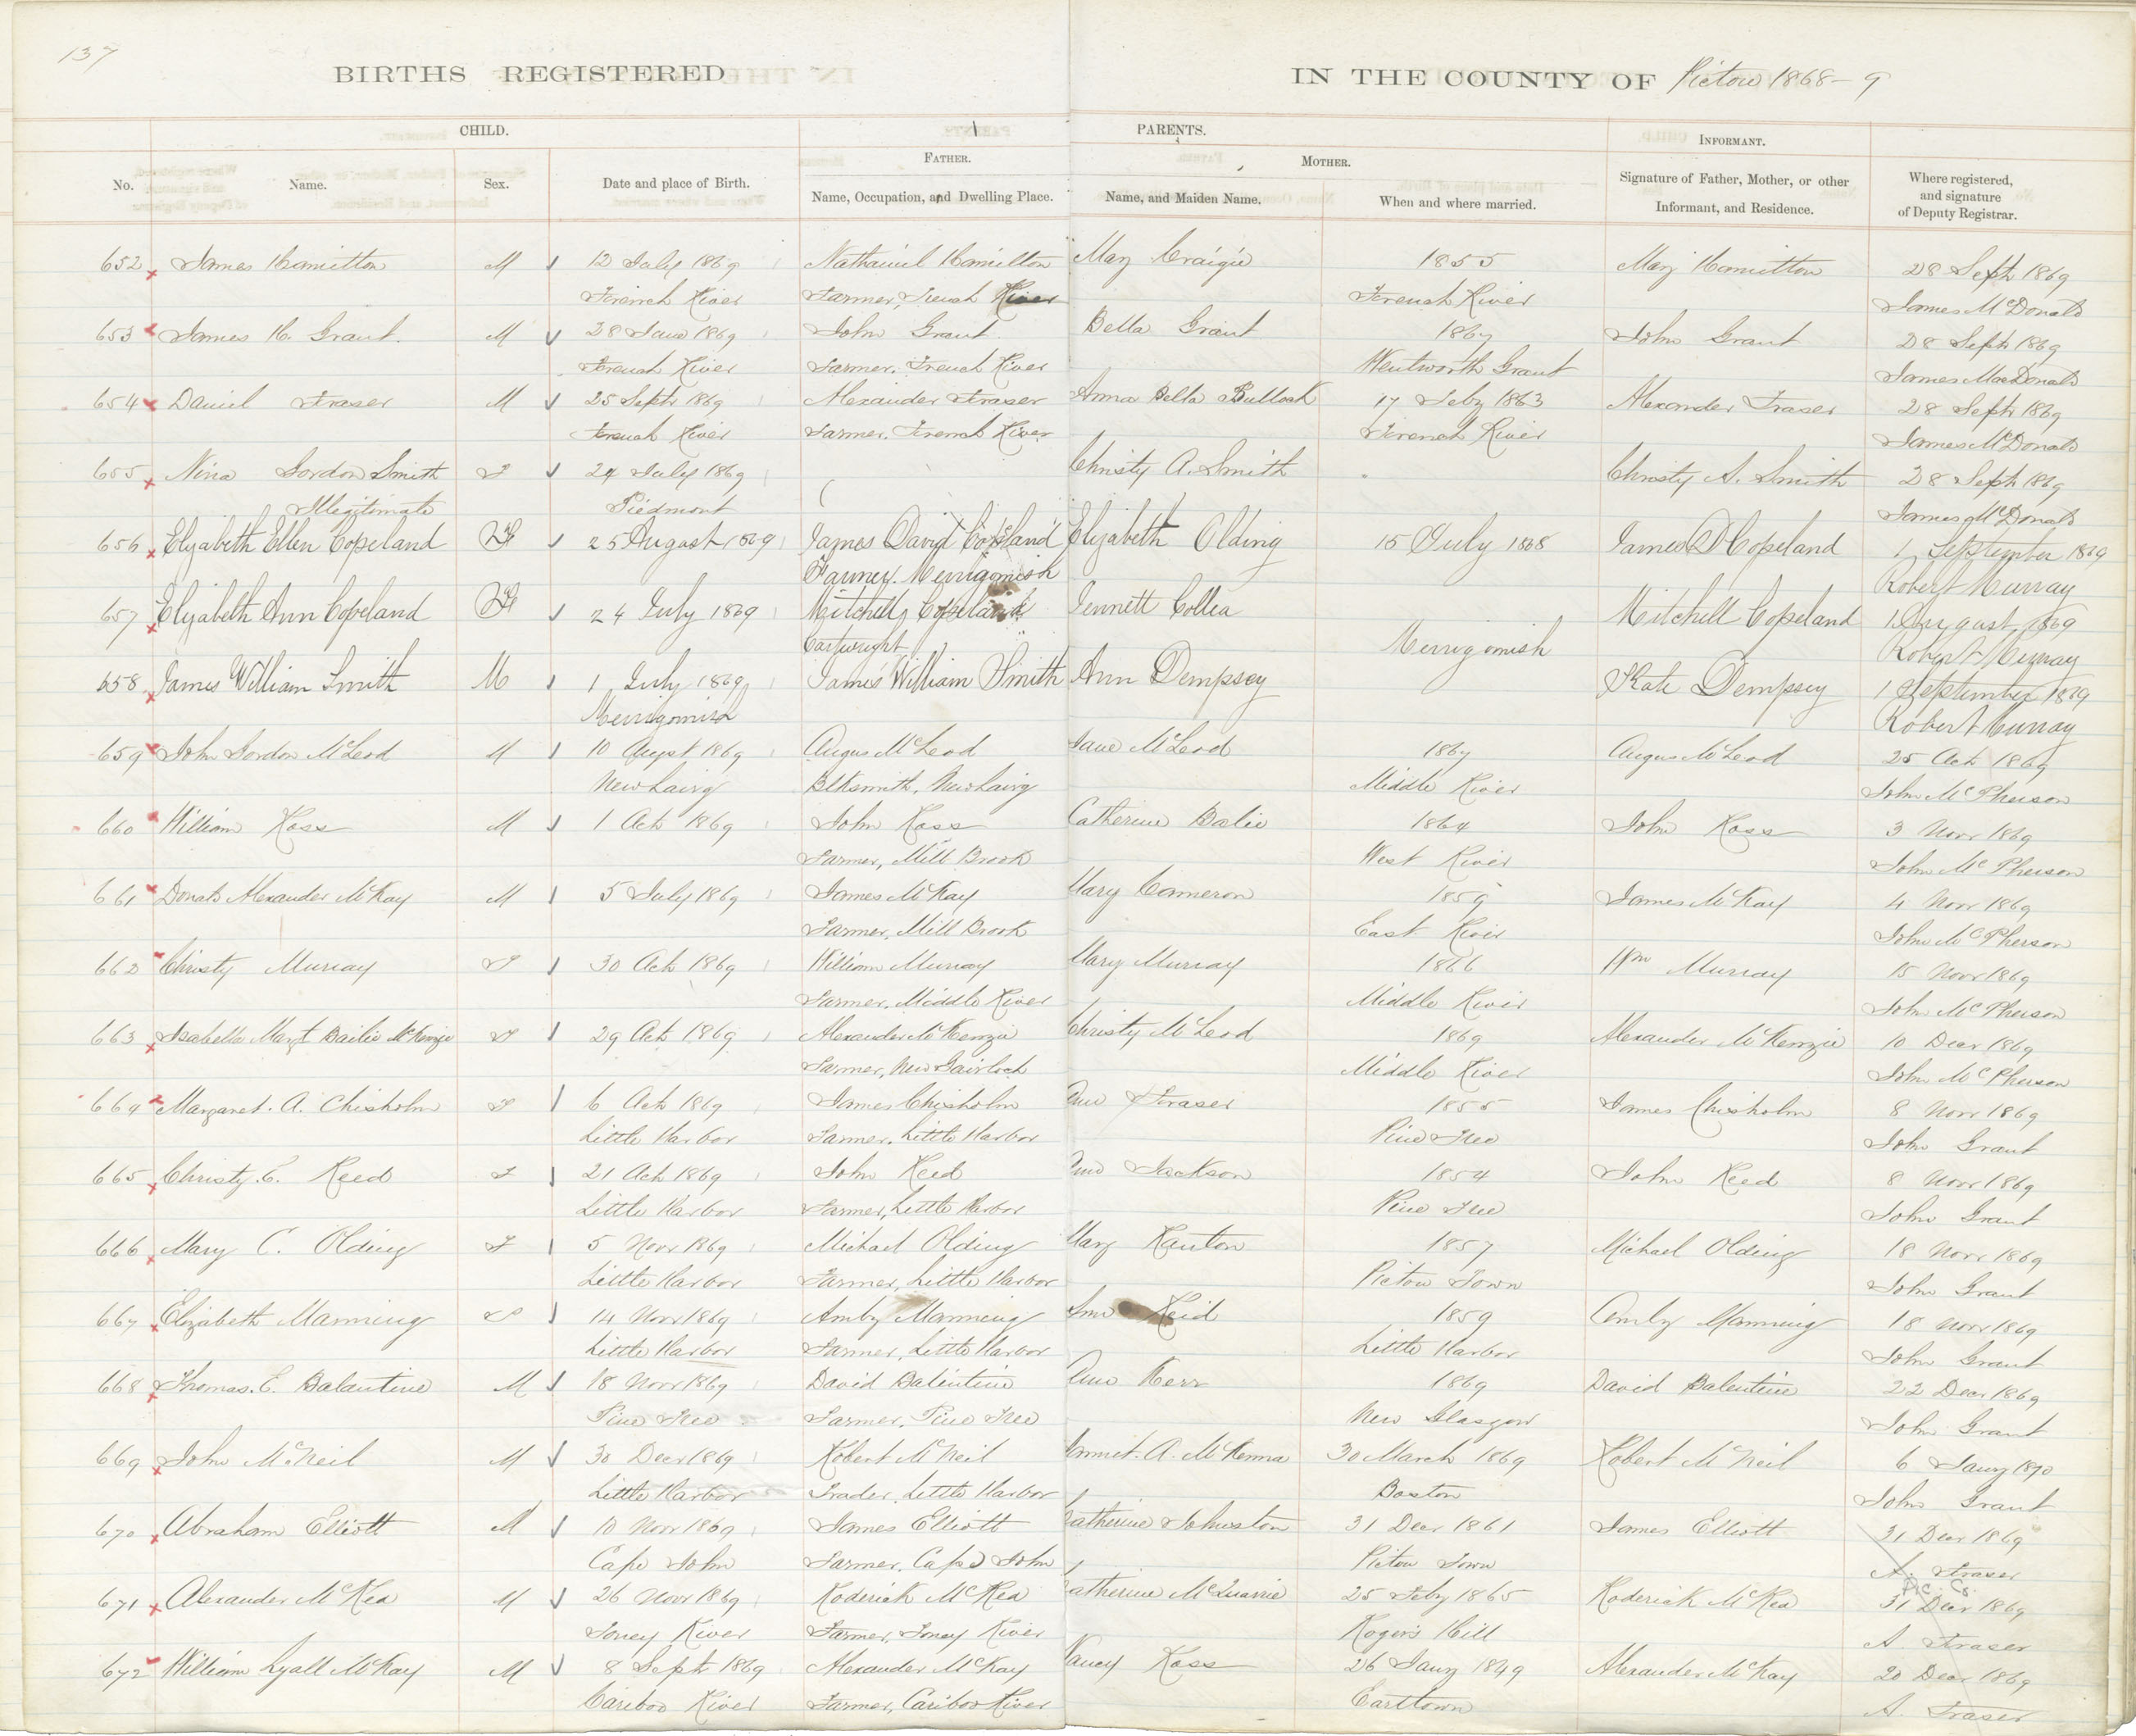 137
BIRTHS REGISTERED IN THE COUNTY OF Pictou 1868-9
CHILD. PARENTS. INFORMANT.
FATHER. MOTHER.
No. Name. Sex. Date and place of Birth. Name, Occupation, and Dwelling Place. Name, and Maiden Name. When and where married. Signature of Father, Mother, or other Informant, and Residence. Where registered, and signature of Deputy Registrar.
652 James Hamilton M 12 July 1869 Nathaniel Hamilton Mary Craigie 1855 Mary Hamilton 28 Sept 1869
French River Farmer, French River French River James McDonald
653 James H. Grant. M 28 1869 John Grant Bella Grant 1867 John Grant 28 Sept 1869
French River Farmer, French River Wentworth Grant James MacDonald
654 Daniel Fraser M 25 Sept 1869 Alexander Fraser Anna Bella Bullock 17 Feby 1863 Alexander Fraser 28 Sept 1869
French River Farmer, French River French River James McDonald
655 Nina Gordon Smith F 24 July 1869 Christy A. Smith Christy A. Smith 28 Sept 1869
Illegitimate Piedmont James McDonald
656 Elizabeth Ellen Copeland F 25 August 1869 James David Copeland Elizabeth Olding 15 July 1868 James D Copeland 1 September 1869
Farmer. Merrigomish Robert Murray
657 Elizabeth Ann Copeland F 24 July 1869 Mitchell Copeland Jennett Collia Mitchell Copeland 1 August 1869
Cartwright Merrigomish Robert Murray
658 James William Smith M 1 July 1869 James William Smith Ann Dempsey Kate Dempsey 1 September 1869
Merrigomish Robert Murray
659 John Gordon McLeod M 10 August 1869 Angus McLeod Jane McLeod 1867 Angus McLeod 25 Oct 1869
New Lairg Blksmith, New Lairg Middle River John McPherson
660 William Ross M 1 Oct 1869 John Ross Catherine Balie 1864 John Ross 3 Novr 1869
Farmer, Mill Brook West River John McPherson
661 Donald Alexander McKay M 5 July 1869 James McKay Mary Cameron 1859 James McKay 4 Novr 1869
Farmer, Mill Brook East River John McPherson
662 Christy Murray F 30 Oct 1869 William Murray Mary Murray 1866 Wm Murray 15 Novr 1869
Farmer, Middle River Middle River John McPherson
663 Isabella Margt Bailie McKenzie F 29 Oct 1869 Alexander McKenzie Christy McLeod 1869 Alexander McKenzie 10 Decr 1869
Farmer, New Gairloch Middle River John McPherson
664 Margaret. A. Chisholm F 6 Oct 1869 James Chisholm Ann Fraser 1855 James Chisholm 8 Novr 1869
Little Harbor Farmer, Little Harbor Pine Tree John Grant
665 Christy. C. Reed F 21 Oct 1869 John Reed Ann Jackson 1854 John Reed 8 Novr 1869
Little Harbor Farmer, Little Harbor Pine Tree John Grant
666 Mary C. Olding F 5 Novr 1869 Michael Olding Mary Kanton 1857 Michael Olding 18 Novr 1869
Little Harbor Farmer, Little Harbor Pictou Town John Grant
667 Elizabeth Manning F 14 Novr 1869 Amby Manning Ann Reid 1859 Amby Manning 18 Novr 1869
Little Harbor Farmer, Little Harbor Little Harbor John Grant
668 Thomas. E. Balantine M 18 Novr 1869 David Balentine Ann Kerr 1869 David Balentine 22 Decr 1869
Pine Tree Farmer, Pine Tree New Glasgow John Grant
669 John McNeil M 30 Decr 1869 Robert McNeil A. McKenna 30 March 1869 Robert McNeil 6 Jany 1870
Little Harbor Trader, Little Harbor Boston John Grant
670 Abraham Elliott M 10 Novr 1869 James Elliott Catherine Johnston 31 Decr 1861 James Elliott 31 Decr 1869
Cape John Farmer, Cape John Pictou Town A. Fraser
671 Alexander McKea M 26 Novr 1869 Roderick McKea Catherine McQuarrie 25 Feby 1865 Roderick McKea 31 Decr 1869
Toney River Farmer, Toney River Rogers Hill A. Fraser
672 William Lyall McKay M 8 Sept 1869 Alexander McKay Nancy Ross 26 Jany 1849 Alexander McKay 20 Decr 1869
Cariboo River Farmer, Cariboo River Earltown A. Fraser